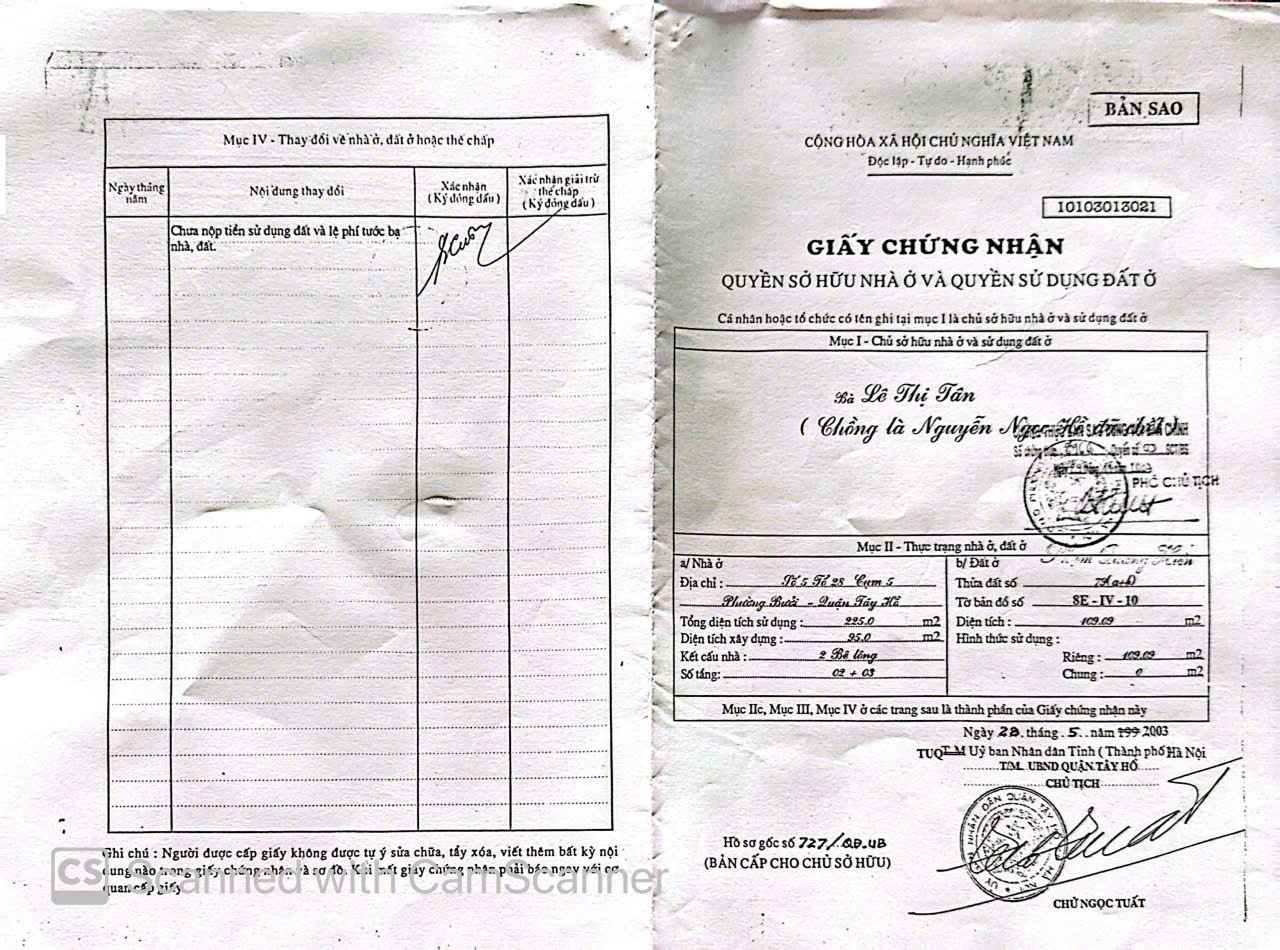 Mục IV - Thay đổi về nhà ở, đất ở hoặc thế chấp
Ngày tháng năm
Nội dung thay đổi
Xác nhận
(Ký đóng dấu)
Xác nhận giải trừ thế chấp
(Ký đóng dấu)
Chưa nộp tiền sử dụng đất và lệ phí tước bạ
nhà, đất.
Ghi chú : Người được cấp giấy không được tự ý sửa chữa, tẩy xóa, viết thêm bất kỳ nội
dung nào trong giấy chứng nhận và sơ đồ. Khi mất giấy chứng nhận phải báo ngay với cơ
quan cấp giấy
CS Scanned with CamScanner
BẢN SAO
CỘNG HÒA XÃ HỘI CHỦ NGHĨA VIỆT NAM
Độc lập - Tự do - Hạnh phúc
10103013021
GIẤY CHỨNG NHẬN
QUYỀN SỞ HỮU NHÀ Ở VÀ QUYỀN SỬ DỤNG ĐẤT Ở
Cá nhân hoặc tổ chức có tên ghi tại mục I là chủ sở hữu nhà ở và sử dụng đất ở
Mục I - Chủ sở hữu nhà ở và sử dụng đất ở
Bà Lê Thị Tân
( Chồng là Nguyễn Ngọc Hồ đã chết )
PHÓ CHỦ TỊCH
Mục II - Thực trạng nhà ở, đất ở
a/ Nhà ở
Địa chỉ : Số 5 Tổ 28 Cụm 5
Phường Bưởi - Quận Tây Hồ
Tổng diện tích sử dụng : 225.0 m2
Diện tích xây dựng : 95.0 m2
Kết cấu nhà : 2 Bê tông
Số tầng: 02 + 03
b/ Đất ở
Thửa đất số
Tờ bản đồ số 8E - IV - 10
Diện tích : 109.09 m2
Hình thức sử dụng :
Riêng : 109.09 m2
Chung : 0 m2
Mục IIc, Mục III, Mục IV ở các trang sau là thành phần của Giấy chứng nhận này
Ngày 28. tháng . 5. năm 199 2003
TUQ T.M Uỷ ban Nhân dân Tỉnh ( Thành phố Hà Nội
T/M. UBND QUẬN TÂY HỒ
CHỦ TỊCH
Hồ sơ gốc số 727/.QĐ.UB
(BẢN CẤP CHO CHỦ SỞ HỮU)
CHỬ NGỌC TUẤT